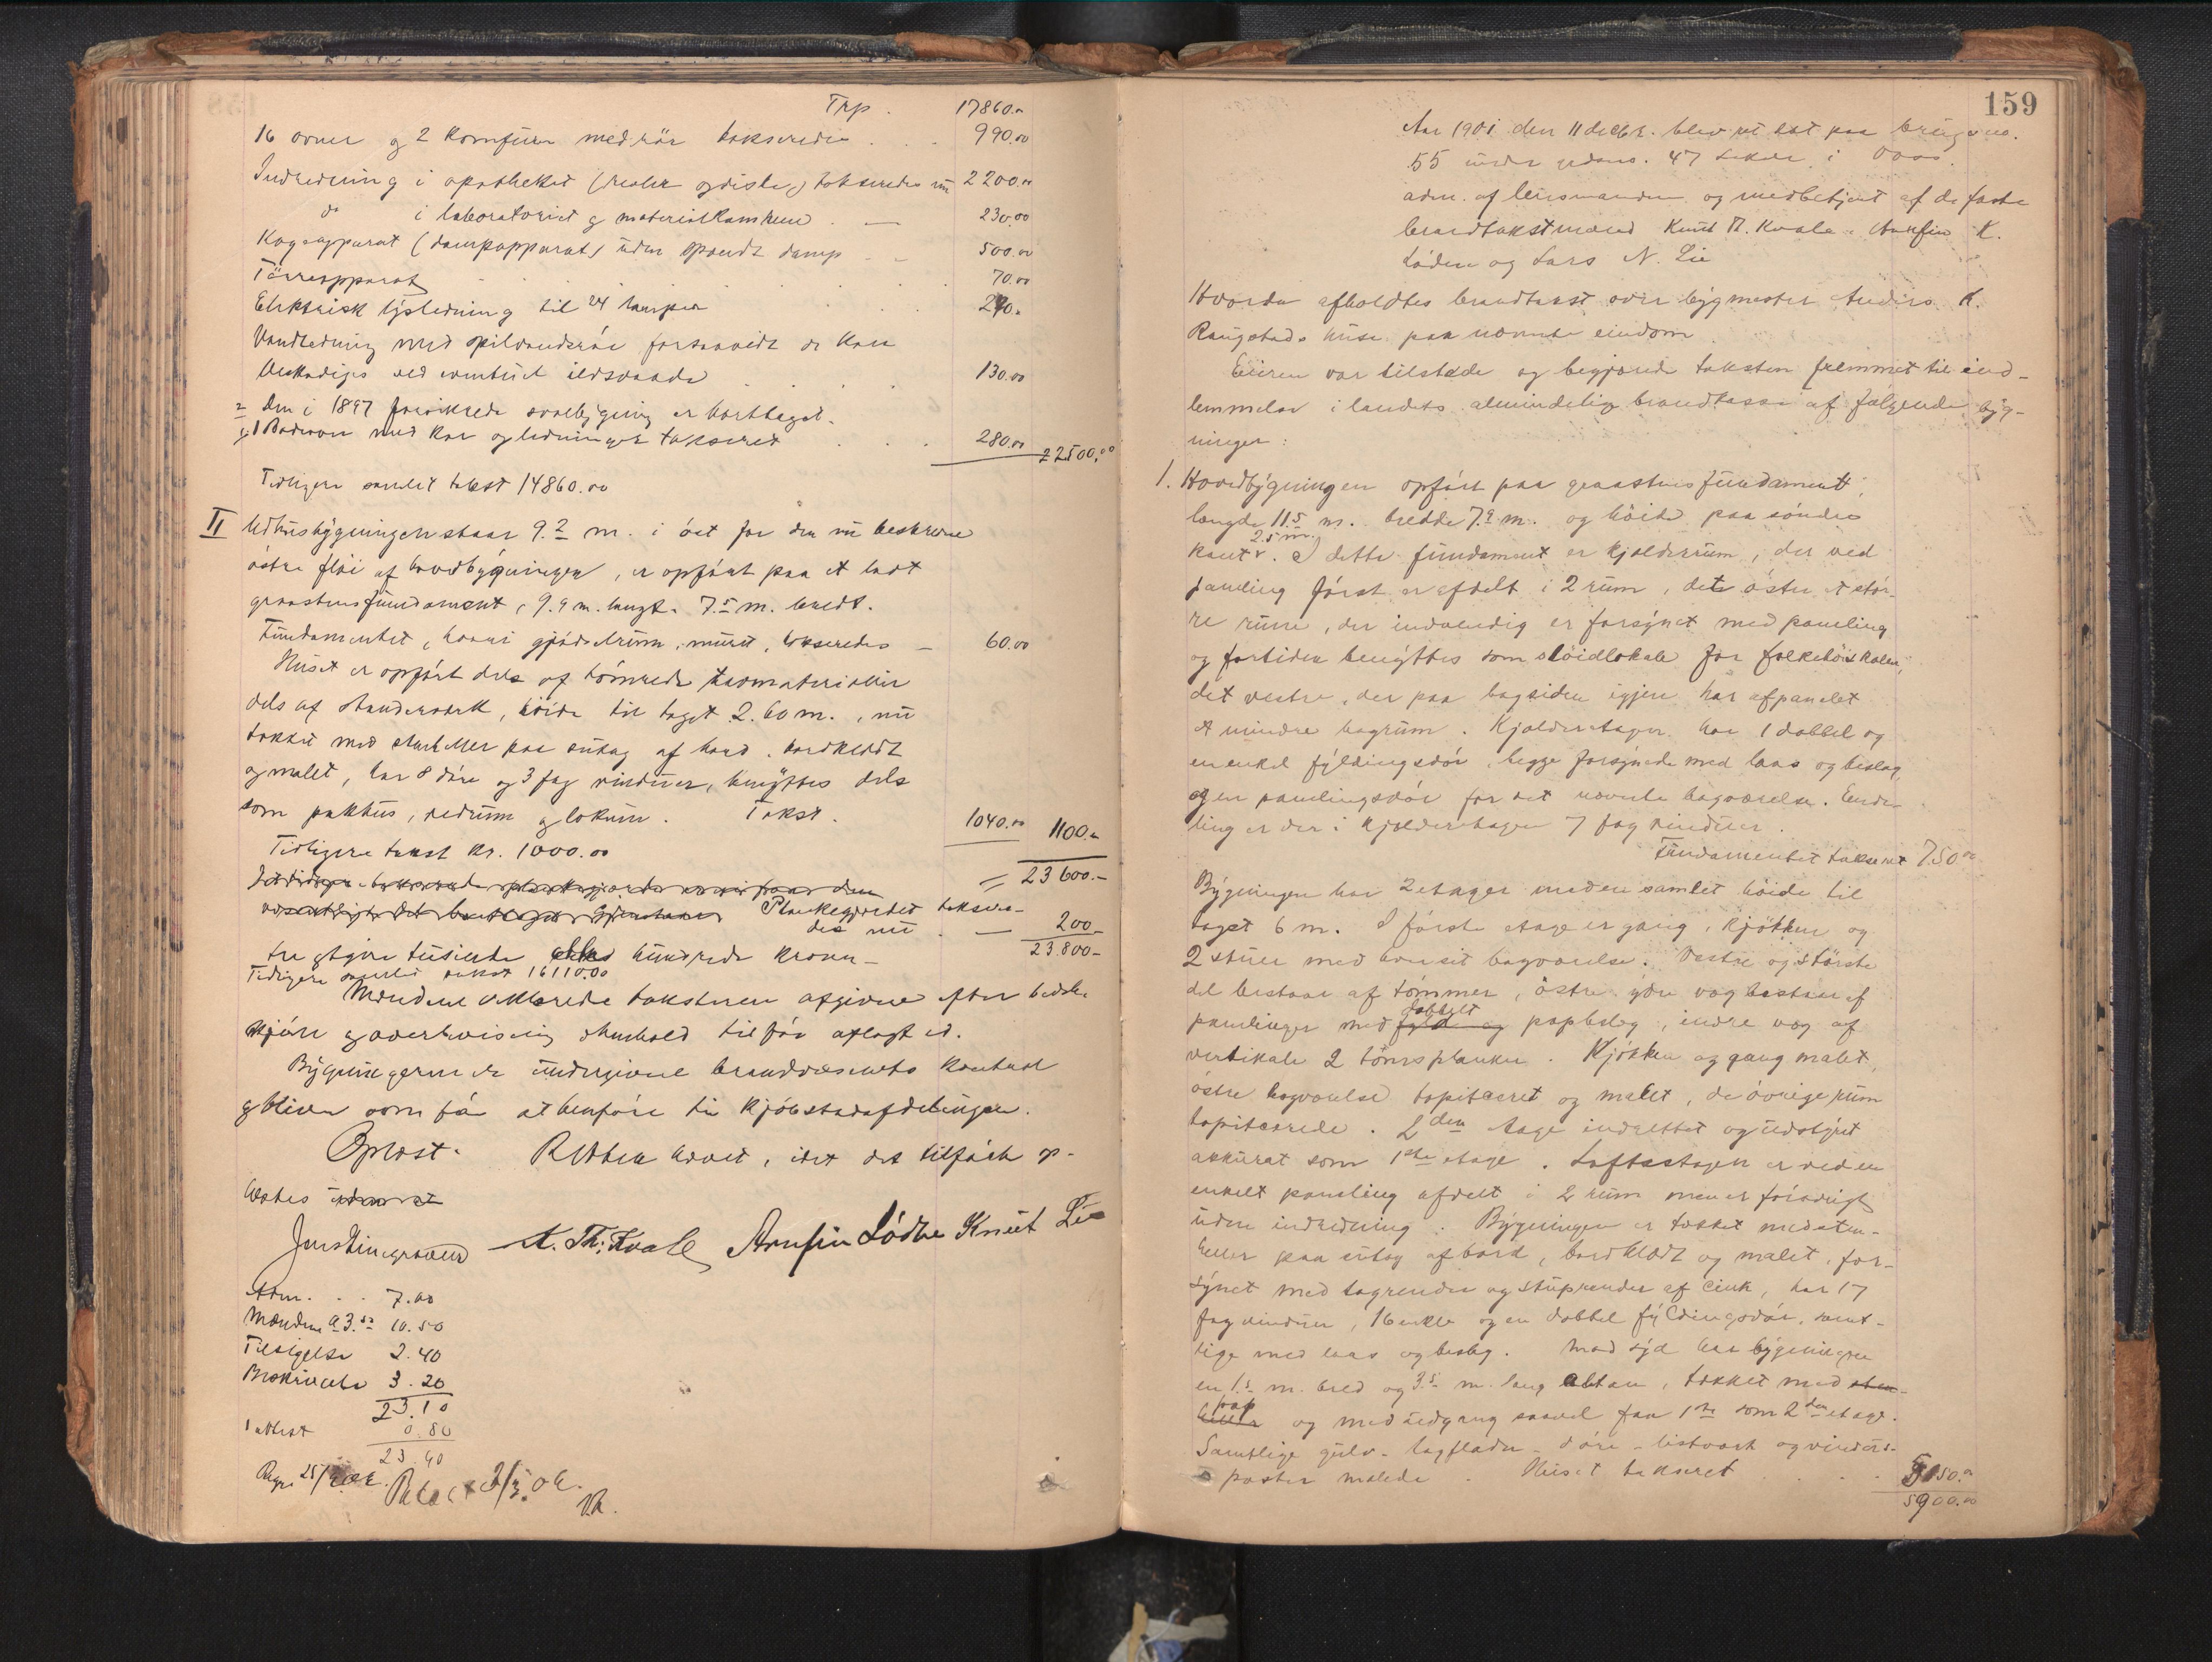 Trp. 17860.00
16 ovner og 2 komfürer med rör takseredes . . . 990.00
Indredning i apotheket (reoler og diske) takseredes nü 2200.00
do i laboratoriet og materialkamrene . — 230.00
Kogeapparat (dampapparat) üden spændt damp - - 500.00
Törreapparat . . . . . . 70.00
Elektrisk lysledning til 24 lamper . . 240.-
Vandledning med spilvandsrör forsaavidt de kan
beskadiges ved eventuel ildsvaade . . . . 130.00
2 Den i 1897 forsikrede svalbygning er borttaget.
g 1 Badeovn med kar og ledninger takseret . . . 280.00 22500.00
Tidligere samlet takst 14860.00
II Udhusbygningen staar 9.2 m. i öst for den nü beskrevne
östre flöi af hovedbygningen, er opfört paa et lavt
graastensfündament, 9.9 m. langt. 7.5 m. bredt.
Fündamentet, hvori gjödselrüm, müret, takseredes — 60.00
Hüset er opfört dels af tömrede tørmaterialier
dels af standerverk, höide til taget 2.60 m., nü
tækket med stenheller paa sütag af bord. bordklædt
og malet, har 8 döre og 3 fag vindüer, benyttes dels
som pakhüs, vedrüm og loküm. Takst. 1040.00 1100.-
Tidligere takst kr. 1000.00
= 23600.-
Plankegjerdet taksere-
des nü — 200.-
tre og tyve tüsinde otte hündrede kroner — 23.800-
Tidligere samlet takst 16110.00
Mændene erklærede taksterne afgivne efter bedste
skjön og overbevisning i henhold til för aflagt ed.
Bygningerne er ündergivne brandvæsenets kontrol
og bliver som för at henföre til kjöbstadafdelingen.
Oplæst. Retten hævet, idet det tilföies at
Jens Kingraven K. Th: Kvale Arnfin Lödve Knüt Lie
Adm. . . 7.00
Mændene a 3.50 10.50
Tilsigelse 2.40
Beskrivelse 3.20
23.10
1 attest 0.80
23.40
159
Aar 1901 den 11 decbr. blev ret sat paa brügsno.
55 ünder gdsno. 47 Lekve i Voss.
adm. af lensmanden og medbetjent af de faste
brandtakstmænd Knut Th. Kvale. Arnfin K.
Lödve og Lars N. Lie
Hvorda afholdtes brandtakst over bygmester Anders K.
Rangstads hüse paa nævnte eiendom.
Eieren var tilstede og begjærede taksten fremmet til ind-
lemmelse i landets almindelig brandkasse af fölgende byg-
ninger:
1. Hovedbygningen opfört paa graastensfündament,
længde 11.5 m. bredde 7.9 m. og höide paa söndre
kant 2.5 m. I dette fündament er kjælderrüm, der ved
paneling först er afdelt i 2 rüm, dete östre et stör-
re rüm, der indvendig er forsynet med paneling
og fortiden benyttes som slöidlokale for folkehöiskolen,
det vestre, der paa bagsiden igjen har afpanelet
et mindre bagrüm. Kjælderetagen har 1 dobbel og
en enkel fyldingsdör, begge forsynede med laas og beslag,
og en panelingsdör for det nævnte bagværelse. Ende-
lig er der i kjælderetagen 7 fag vindüer.
Fündamentet takseret 750.00
Bygningen har 2 etager med en samlet höide til
taget 6 m. I förste etage er gang, kjökken og
2 stüer med hver sit bagværelse. Vestre og störste
del bestaar af tömmer, östre ydre væg bestaar af
panelinger med dobbelt papbelæg, indre væg af
vertikale 2 toms planker. Kjökken og gang malet,
östre bagværelse tapitseret og malet, de övrige rüm
tapitserede. 2den etage indrettet og üdstyret
akkürat som 1ste etage. Loftsetagen er ved en
enkelt paneling afdelt i 2 rüm men er forövrigt
üden indredning. Bygningen er tækket med sten-
heller paa sütag af bord, bordklædt og malet, for-
synet med tagrender og stüprender af cink, har 17
fag vindüer, 16 enkle og en dobbel fyldingsdör, samt-
lige med laas og beslag. Mod syd har bygningen
en 1.5 m. bred og 3.5 m. lang altan, tækket med sten-
heller pap og med üdgang saavel fra 1ste som 2den etage.
Samtlige gulv- tagflader- döre- listværk og vindüs-
poster malede. Hüset takseret . . . . 5150.00
5900.00